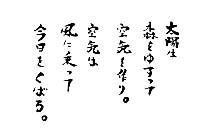 太陽は
森をゆすって
空気を作り。
空気は
風に乗って
今日をくばる。